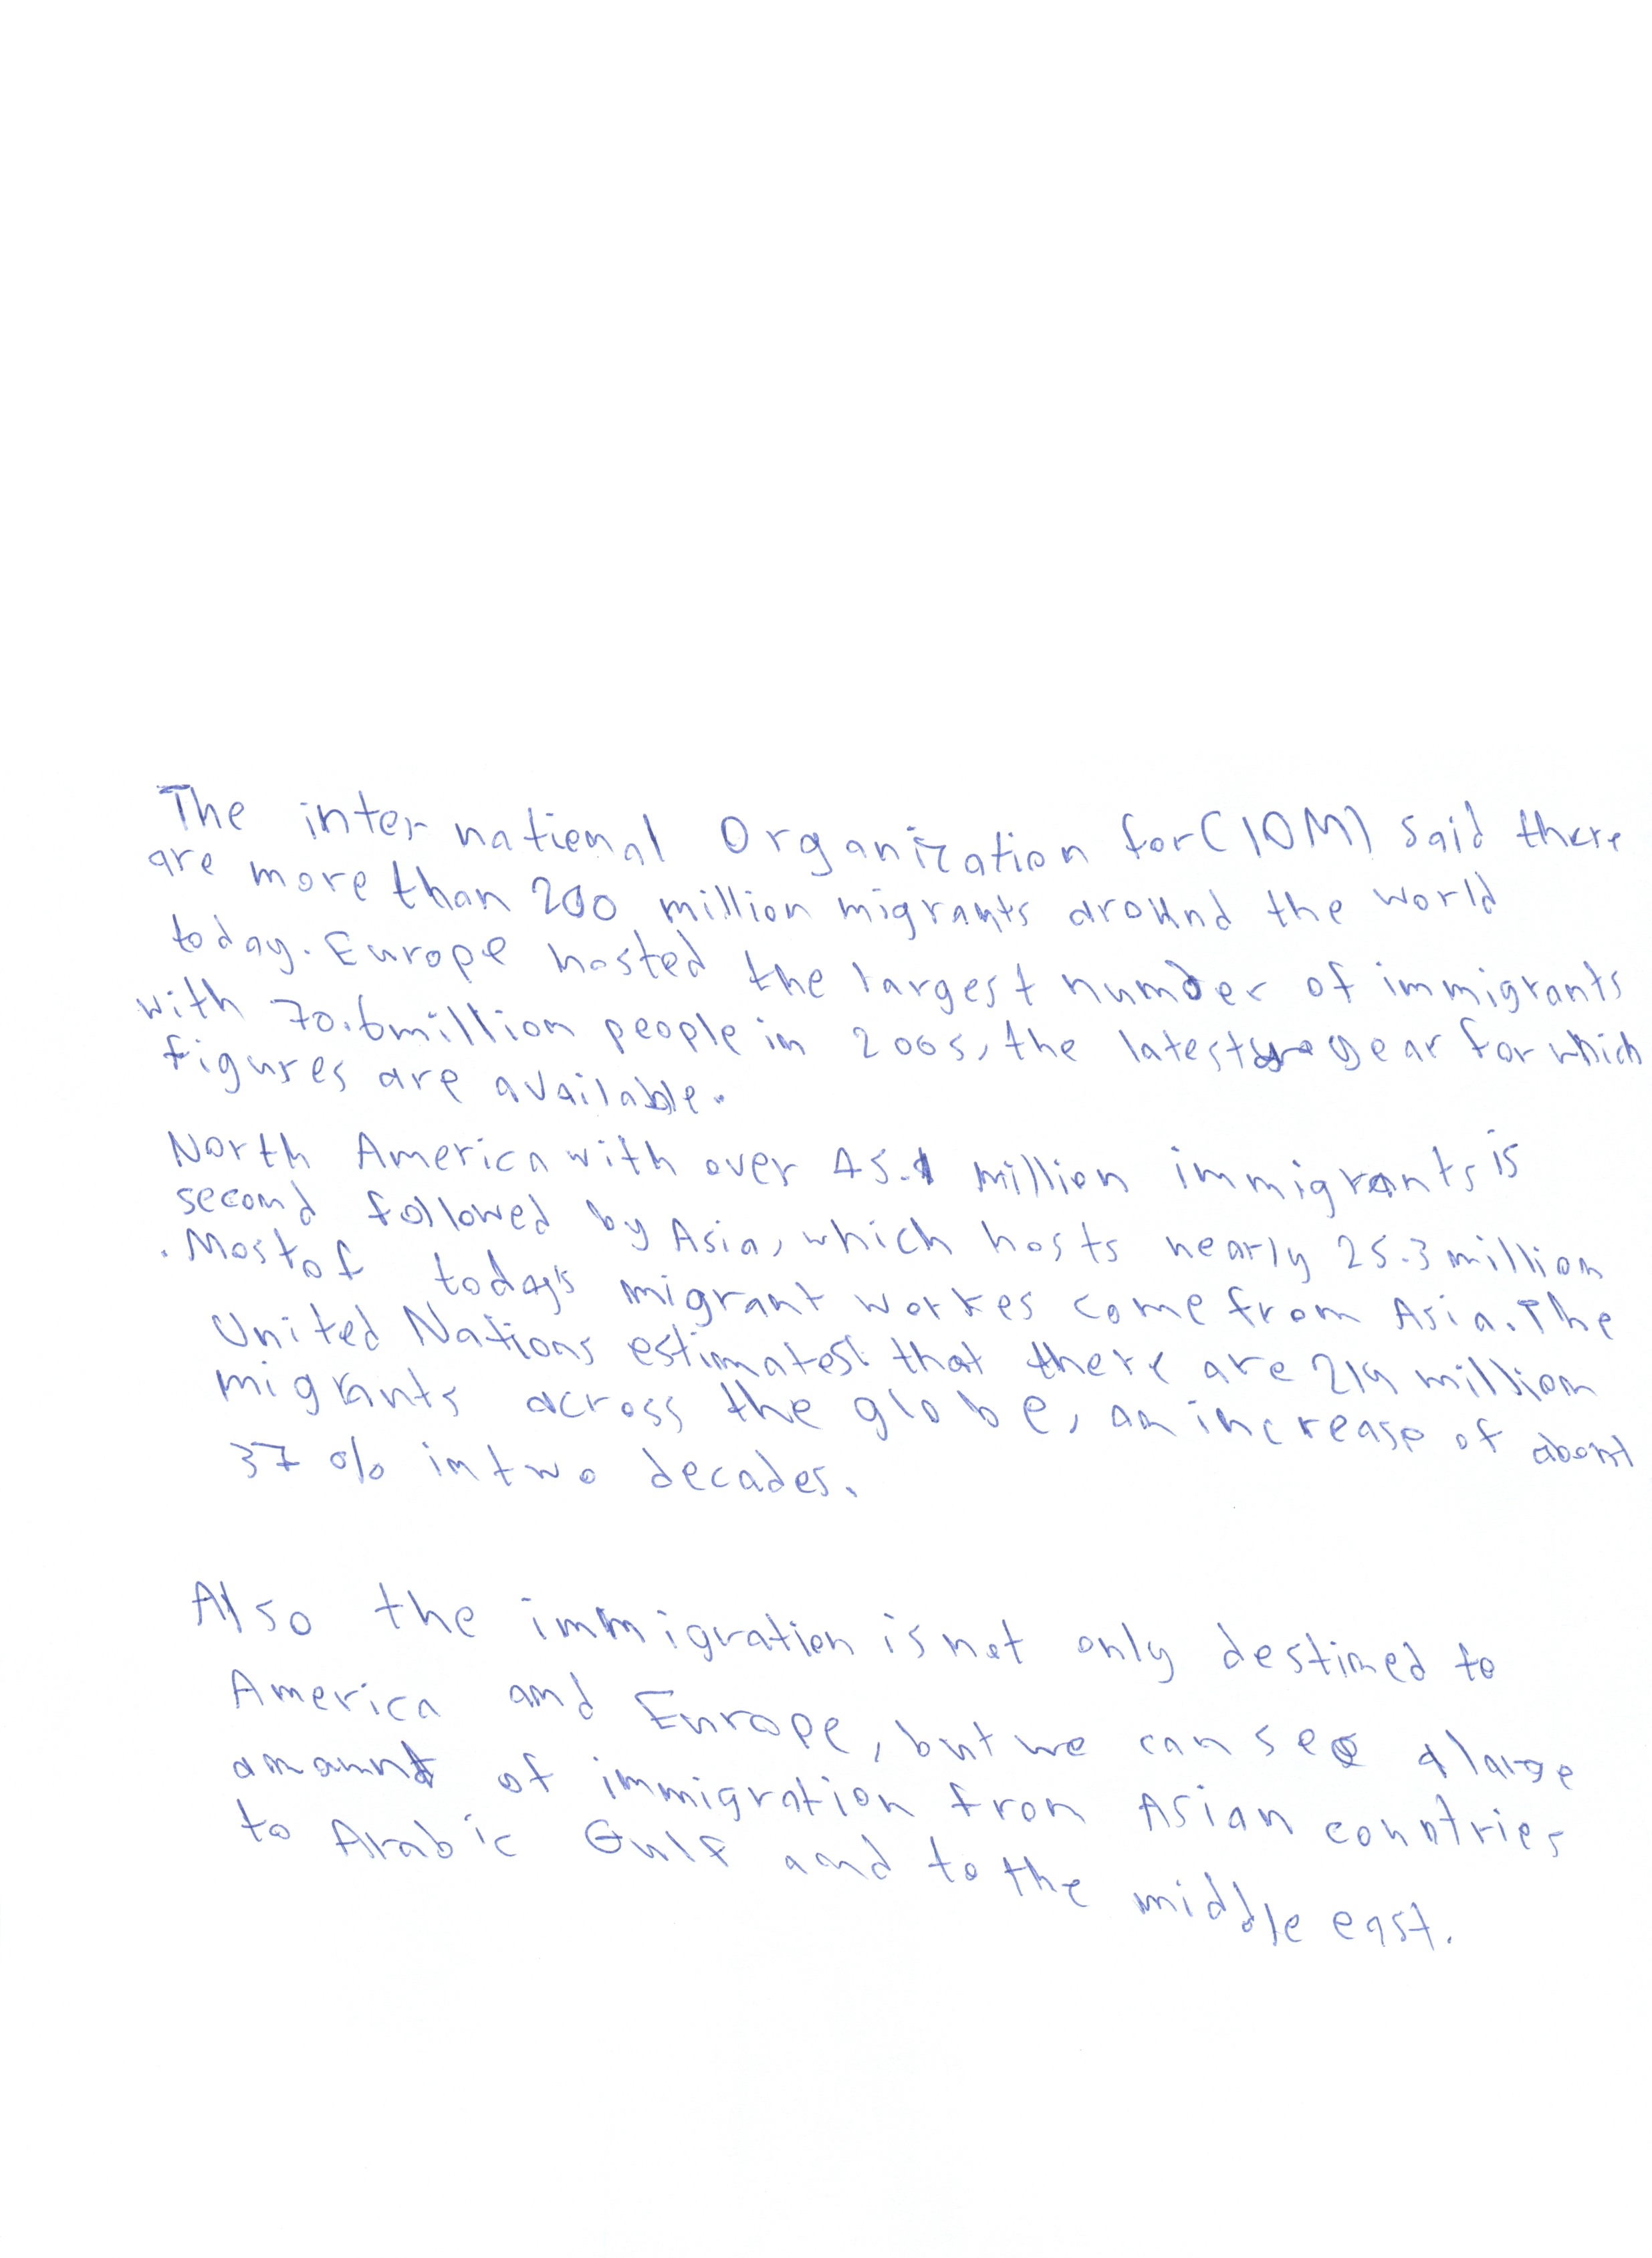 The international Organization for (IOM) said there
are more than 200 million migrants around the world
today. Europe hosted the largest number of immigrants
with 70.6 million people in 2005, the latest year for which
figures are available.
North America with over 45.1 million immigrants is
second followed by Asia, which hosts nearly 25.3 million
. Most of today's migrant workes come from Asia. The
United Nations estimates that there are 214 million
migrants across the globe, an increase of about
37 % in two decades.
Also the immigration is not only destined to
America and Europe, but we can see a large
amount of immigration from Asian countries
to Arabic Gulf and to the middle east.